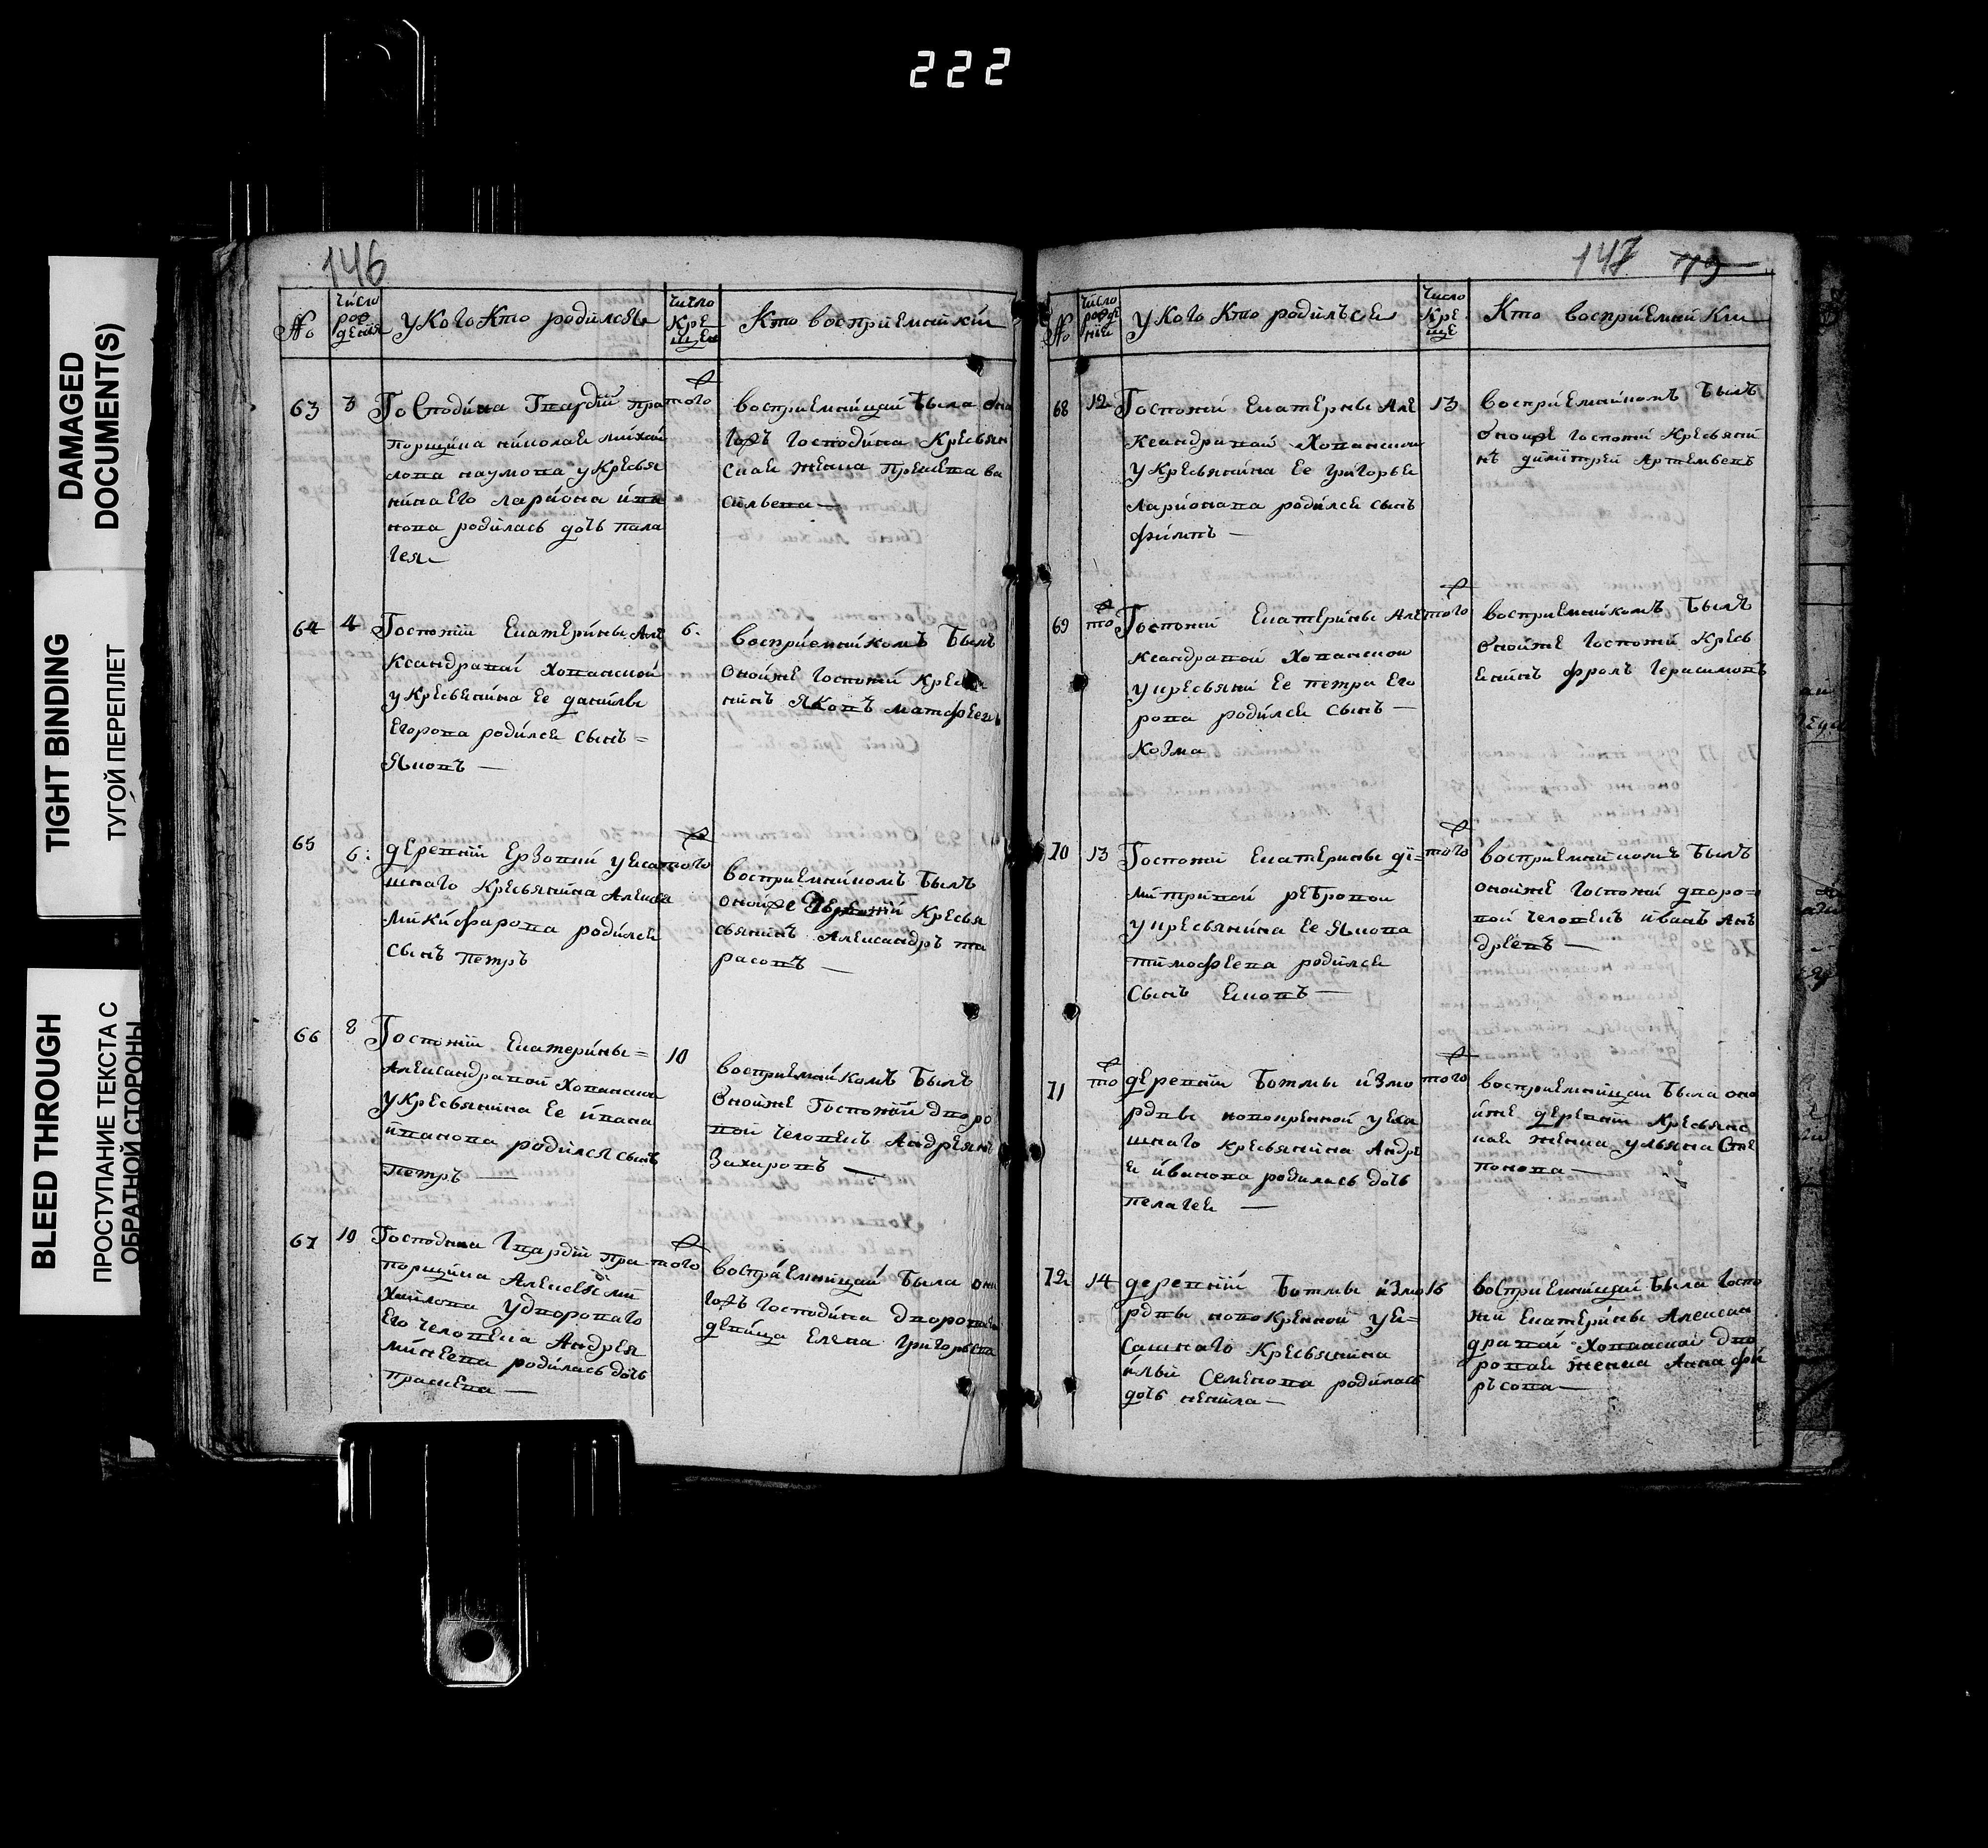 222
DAMAGED
DOCUMENT(S)
TIGHT BINDING
ТУГОЙ ПЕРЕПЛЕТ
BLEED THROUGH
ПРОСТУПАНИЕ ТЕКСТА С
ОБРАТНОЙ СТОРОНЫ
146
№
число рождения
у Кого Кто родился
число Крещен
Кто восприемники
63
3
Господина Гвардiи пра
порщика николая михаи
лова наумова у Кресья
нина Его лариона ива
нова родилась дочь пала
гея
того
восприемницаи была она
гожъ Господина Кресьян
ская женка Прасковья ва
сильева
64
4
Госпожи Екатерины Але
ксандраваи Хованской
у Кресьенина Ее данилы
Егорова родился сынъ =
Яковъ
6.
восприемникомъ былъ
Онойже Госпожи Кресья
нинъ Яковъ матфеевъ
65
6:
деревни Ерзовки уеса
шнаго Кресьянина Алексея
Микифарова родился
Сынъ Петръ
того
восприемникомъ былъ
онойже деревни Кресья
сьянинъ Александръ та
расовъ
66
8
Госпожи Екатерины =
Александравой Хованской
у Кресьянина Ее ивана
иванова родился сынъ
Петръ
10
восприемникомъ былъ
Онойже Госпожи дворо
вой человекъ Андреянъ
Захаровъ
67
10
Господина Гвардiи пра
порщика Алексея ми
хаилова у двороваго
Его человека Андрея
минеева родилась дочь
того
восприемницаи была она
гожъ Господина дворовая
девица Елена Григорьева
147
79
№
число рождений
у Кого Кто родилъся
число Креще
Кто восприемники
68
12
Госпожи Екатерины Але
ксандравай Хованской
у Кресьянина Ее григорья
Ларионава родился сынъ
филипъ
13
восприемникомъ былъ
Онойже Госпожи Кресьяни
нъ димитрей Артемьевъ
69
то
Госпожи Екатерины Але
ксандравой Хованской
у кресьяни Ее петра Его
рова родился сынъ
Козма
того
восприемникомъ былъ
Онойже Госпожи Кресь
енинъ фролъ Герасимовъ
70
13
Госпожи Екатерины ди=
митривой ребровой
у кресьянина Ее Якова
тимофеева родился
сынъ Яковъ
того
восприемникомъ былъ
онойже Госпожи дворо=
вой человекъ иванъ Анъ
дреевъ
71
то
деревни Ботмы измо
рдвы новокренной уеса
шнаго Кресьянина Андре
я иванова родилась дочь
пелагея
того
восприемницаи была оно
йже деревни Кресьянс
кая женка ульяна Сте
панова
72
14
деревни Ботмы измо
рдвы новокренной уя=
сашнаго Кресьянина
ильи Семенова родилась
дочь ненила
16
восприемницаи была Госпо
жи Екатерины Алекса
дравай Хованской дво
ровая женка Анна фи
рсова